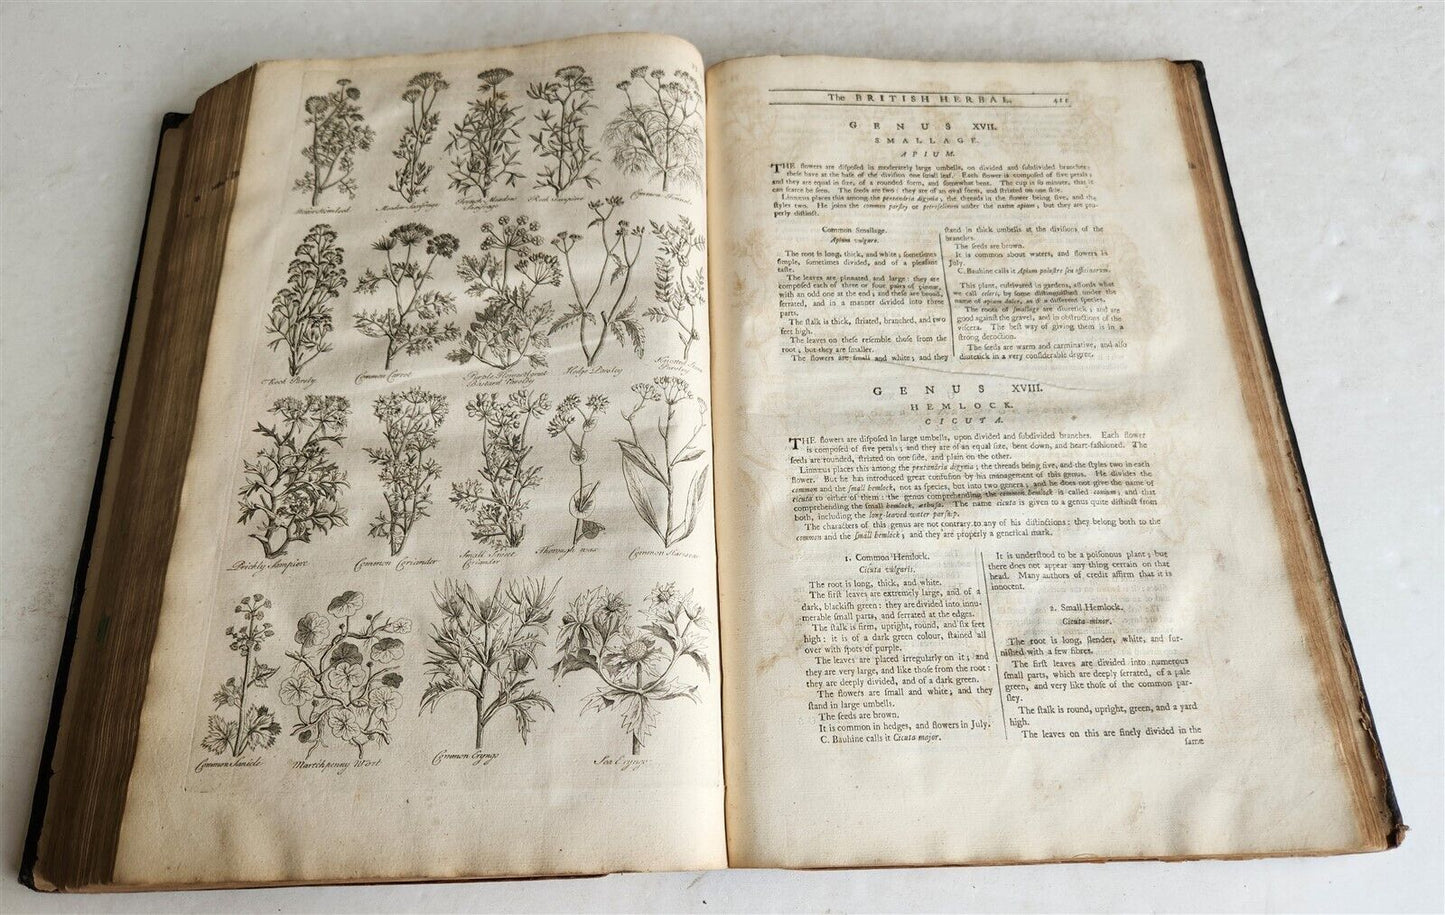 Common Fennel
Root Parsly
Common Carrot
Bastard Parsley
Hedge Parsley
Prickly Sampiere
Common Coriander
Small Coriander
Thorough wax
Common Sanicle
Marchpenny Wort
Common Eryngo
Sea Eryngo
The BRITISH HERBAL. 411
GENUS XVII.
SMALLAGE.
APIUM.
THE flowers are diſpoſed in moderately large umbells, on divided and ſubdivided branches:
theſe have at the baſe of the diviſion one ſmall leaf. Each flower is compoſed of five petals;
and they are equal in ſize, of a rounded form, and ſomewhat bent. The cup is ſo minute, that it
can ſcarce be ſeen. The ſeeds are two: they are of an oval form, and ſtriated on one ſide.
Linnæus places this among the pentandria digynia; the threads in the flower being five, and the
ſtyles two. He joins the common parſley or petroſelinum under the name apium; but they are pro-
perly diſtinct.
Common Smallage.
Apium vulgare.
The root is long, thick, and white; ſometimes
ſimple, ſometimes divided, and of a pleaſant
taſte.
The leaves are pinnated and large: they are
compoſed each of three or four pairs of pinnæ,
with an odd one at the end; and theſe are broad,
ſerrated, and in a manner divided into three
parts.
The ſtalk is thick, ſtriated, branched, and two
feet high.
The leaves on theſe reſemble thoſe from the
root; but they are ſmaller.
The flowers are ſmall and white; and they
ſtand in thick umbells at the diviſions of the
branches.
The ſeeds are brown.
It is common about waters, and flowers in
July.
C. Bauhine calls it Apium paluſtre ſeu officinarum.
This plant, cultivated in gardens, affords what
we call celeri, by ſome diſtinguiſhed under the
name of apium dulce, as if a different ſpecies.
The roots of ſmallage are diuretick; and are
good againſt the gravel, and in obſtructions of the
viſcera. The beſt way of giving them is in a
ſtrong decoction.
The ſeeds are warm and carminative, and alſo
diuretick in a very conſiderable degree.
GENUS XVIII.
HEMLOCK.
CICUTA.
THE flowers are diſpoſed in large umbells, upon divided and ſubdivided branches. Each flower
is compoſed of five petals; and they are of an equal ſize, bent down, and heart-faſhioned. The
ſeeds are rounded, ſtriated on one ſide, and plain on the other.
Linnæus places this among the pentandria digynia; the threads being five, and the ſtyles two in each
flower. But he has introduced great confuſion by his management of this genus. He divides the
common and the ſmall hemlock, not as ſpecies, but into two genera; and he does not give the name of
cicuta to either of them: the genus comprehending the common hemlock is called conium; and that
comprehending the ſmall hemlock, æthuſa. The name cicuta is given to a genus quite diſtinct from
both, including the long-leaved water parſnip.
The characters of this genus are not contrary to any of his diſtinctions: they belong both to the
common and the ſmall hemlock; and they are properly a generical mark.
1. Common Hemlock.
Cicuta vulgaris.
The root is long, thick, and white.
The firſt leaves are extremely large, and of a
dark, blackiſh green: they are divided into innu-
merable ſmall parts, and ſerrated at the edges.
The ſtalk is firm, upright, round, and ſix feet
high: it is of a dark green colour, ſtained all
over with ſpots of purple.
The leaves are placed irregularly on it; and
they are very large, and like thoſe from the root:
they are deeply divided, and of a dark green.
The flowers are ſmall and white; and they
ſtand in large umbells.
The ſeeds are brown.
It is common in hedges, and flowers in July.
C. Bauhine calls it Cicuta major.
It is underſtood to be a poiſonous plant; but
there does not appear any thing certain on that
head. Many authors of credit affirm that it is
innocent.
2. Small Hemlock.
Cicuta minor.
The root is long, ſlender, white, and fur-
niſhed with a few fibres.
The firſt leaves are divided into numerous
ſmall parts, which are deeply ſerrated, of a pale
green, and very like thoſe of the common par-
ſley.
The ſtalk is round, upright, green, and a yard
high.
The leaves on this are finely divided in the
ſame